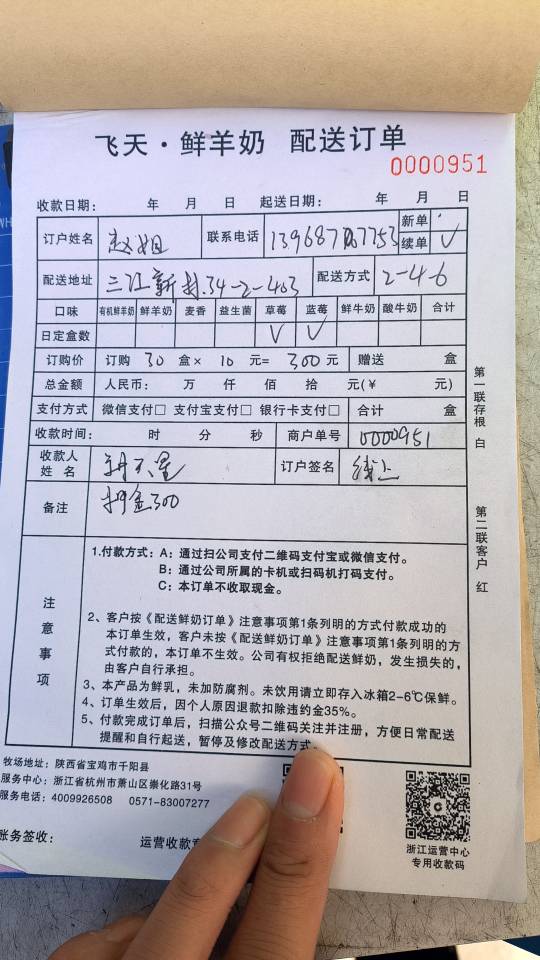 飞天·鲜羊奶 配送订单
0000951
收款日期： 年 月 日 起送日期： 年 月 日
订户姓名 赵姐 联系电话 新单
续单 ✓
配送地址 三江新村.34-2-403 配送方式 2-4-6
口味 有机鲜羊奶 鲜羊奶 麦香 益生菌 草莓 蓝莓 鲜牛奶 酸牛奶 合计
日定盒数 ✓ ✓
订购价 订购 30 盒× 10 元= 300 元 赠送 盒
总金额 人民币： 万 仟 佰 拾 元(￥ 元)
支付方式 微信支付□ 支付宝支付□ 银行卡支付□ 合计 盒
收款时间： 时 分 秒 商户单号 0000951
收款人
姓 名 订户签名 线上
备注 押金300
注意事项
1.付款方式：A：通过扫公司支付二维码支付宝或微信支付。
B：通过公司所属的卡机或扫码机打码支付。
C：本订单不收取现金。
2、客户按《配送鲜奶订单》注意事项第1条列明的方式付款成功的
本订单生效，客户未按《配送鲜奶订单》注意事项第1条列明的方
式付款的，本订单不生效。公司有权拒绝配送鲜奶，发生损失的，
由客户自行承担。
3、本产品为鲜乳，未加防腐剂。未饮用请立即存入冰箱2-6℃保鲜。
4、订单生效后，因个人原因退款扣除违约金35%。
5、付款完成订单后，扫描公众号二维码关注并注册，方便日常配送
提醒和自行起送，暂停及修改配送方式。
第一联存根 白
第二联客户 红
牧场地址：陕西省宝鸡市千阳县
服务中心：浙江省杭州市萧山区崇化路31号
服务电话：4009926508 0571-83007277
账务签收： 运营收款
浙江运营中心
专用收款码